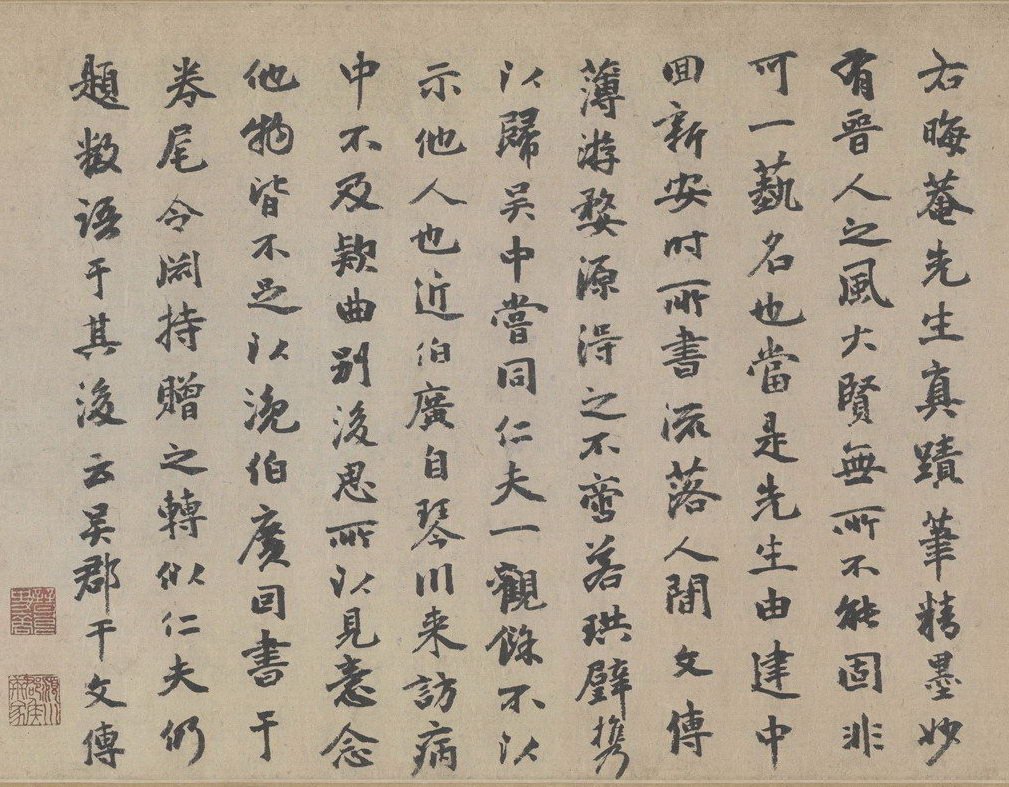 右晦菴先生真蹟筆精墨妙
有晉人之風大賢無所不能固非
可一藝名也當是先生由建中
回新安时所書流落人間文傳
薄游婺源淂之不啻若珙璧携
以歸吴中嘗同仁夫一觀餘不以
示他人也近伯廣自琴川来訪病
中不及欵曲别後思所以見意念
他物皆不足以浼伯廣回書于
券尾令闳持贈之轉似仁夫仍
題数語于其後云吴郡干文傳